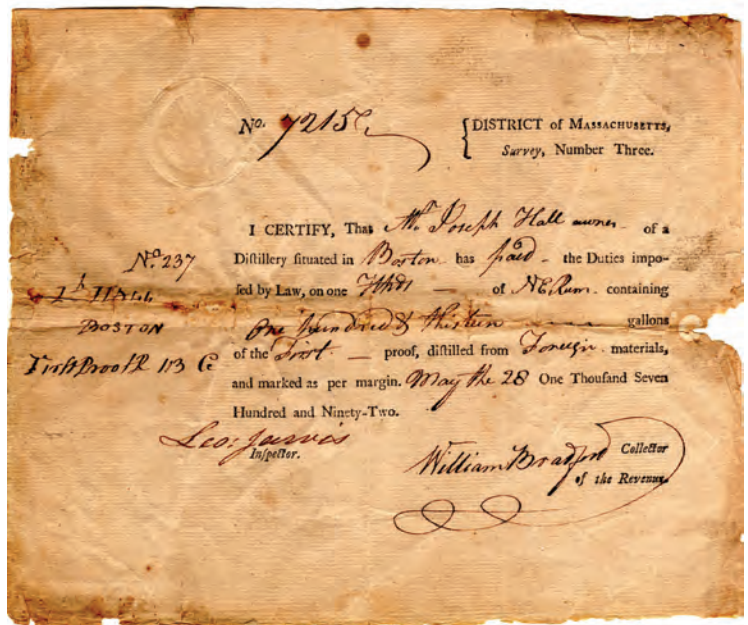 No. 7215
{ DISTRICT of MASSACHUSETTS,
Survey, Number Three.
I CERTIFY, That Mr Joseph Hall owner of a
Distillery situated in Boston has paid the Duties impo-
sed by Law, on one Hhds of NE Rum containing
One hundred & thirteen gallons
of the First proof, distilled from Foreign materials,
and marked as per margin. May the 28 One Thousand Seven
Hundred and Ninety-Two.
No. 237
HALL
BOSTON
First Proof R 113 G
Leo: Jarvis
Inspector.
William Bradford Collector
of the Revenue.